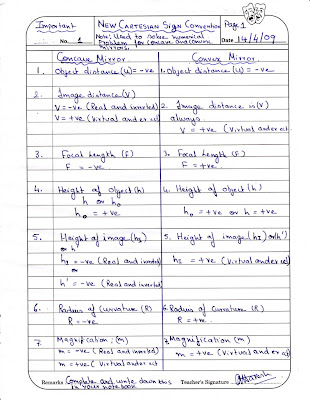 Important
NEW CARTESIAN SIGN CONVENTION
Page 1
No. 1
Note: Used to solve numerical
problem for concave and convex
mirrors.
Date 14/4/09
Concave Mirror
Convex Mirror
1. Object distance (u) = -ve
1. Object distance (u) = -ve
2. Image distance (v)
v = -ve (Real and inverted)
v = +ve (Virtual and erect
2. Image distance is (v)
always
v = +ve (Virtual and ect
3. Focal Length (F)
F = -ve
3. Focal Length (F)
F = +ve
4. Height of object (h)
h or ho
ho = +ve
4. Height of object (h)
ho = +ve or h = +ve
5. Height of image (hI)
or h'
hI = -ve (Real and inverted)
or
h' = -ve (Real and inverted)
5. Height of image (hI) or (h')
hI = +ve (Virtual and er ect
6. Radius of Curvature (R)
R = -ve
6. Radius of Curvature (R)
R = +ve
7. Magnification (m)
m = -ve (Real and inverted)
m = +ve (Virtual and erect
7. Magnification (m)
m = +ve (Virtual and er ect
Remarks Complete and write down this
in your notebook
Teacher's Signature